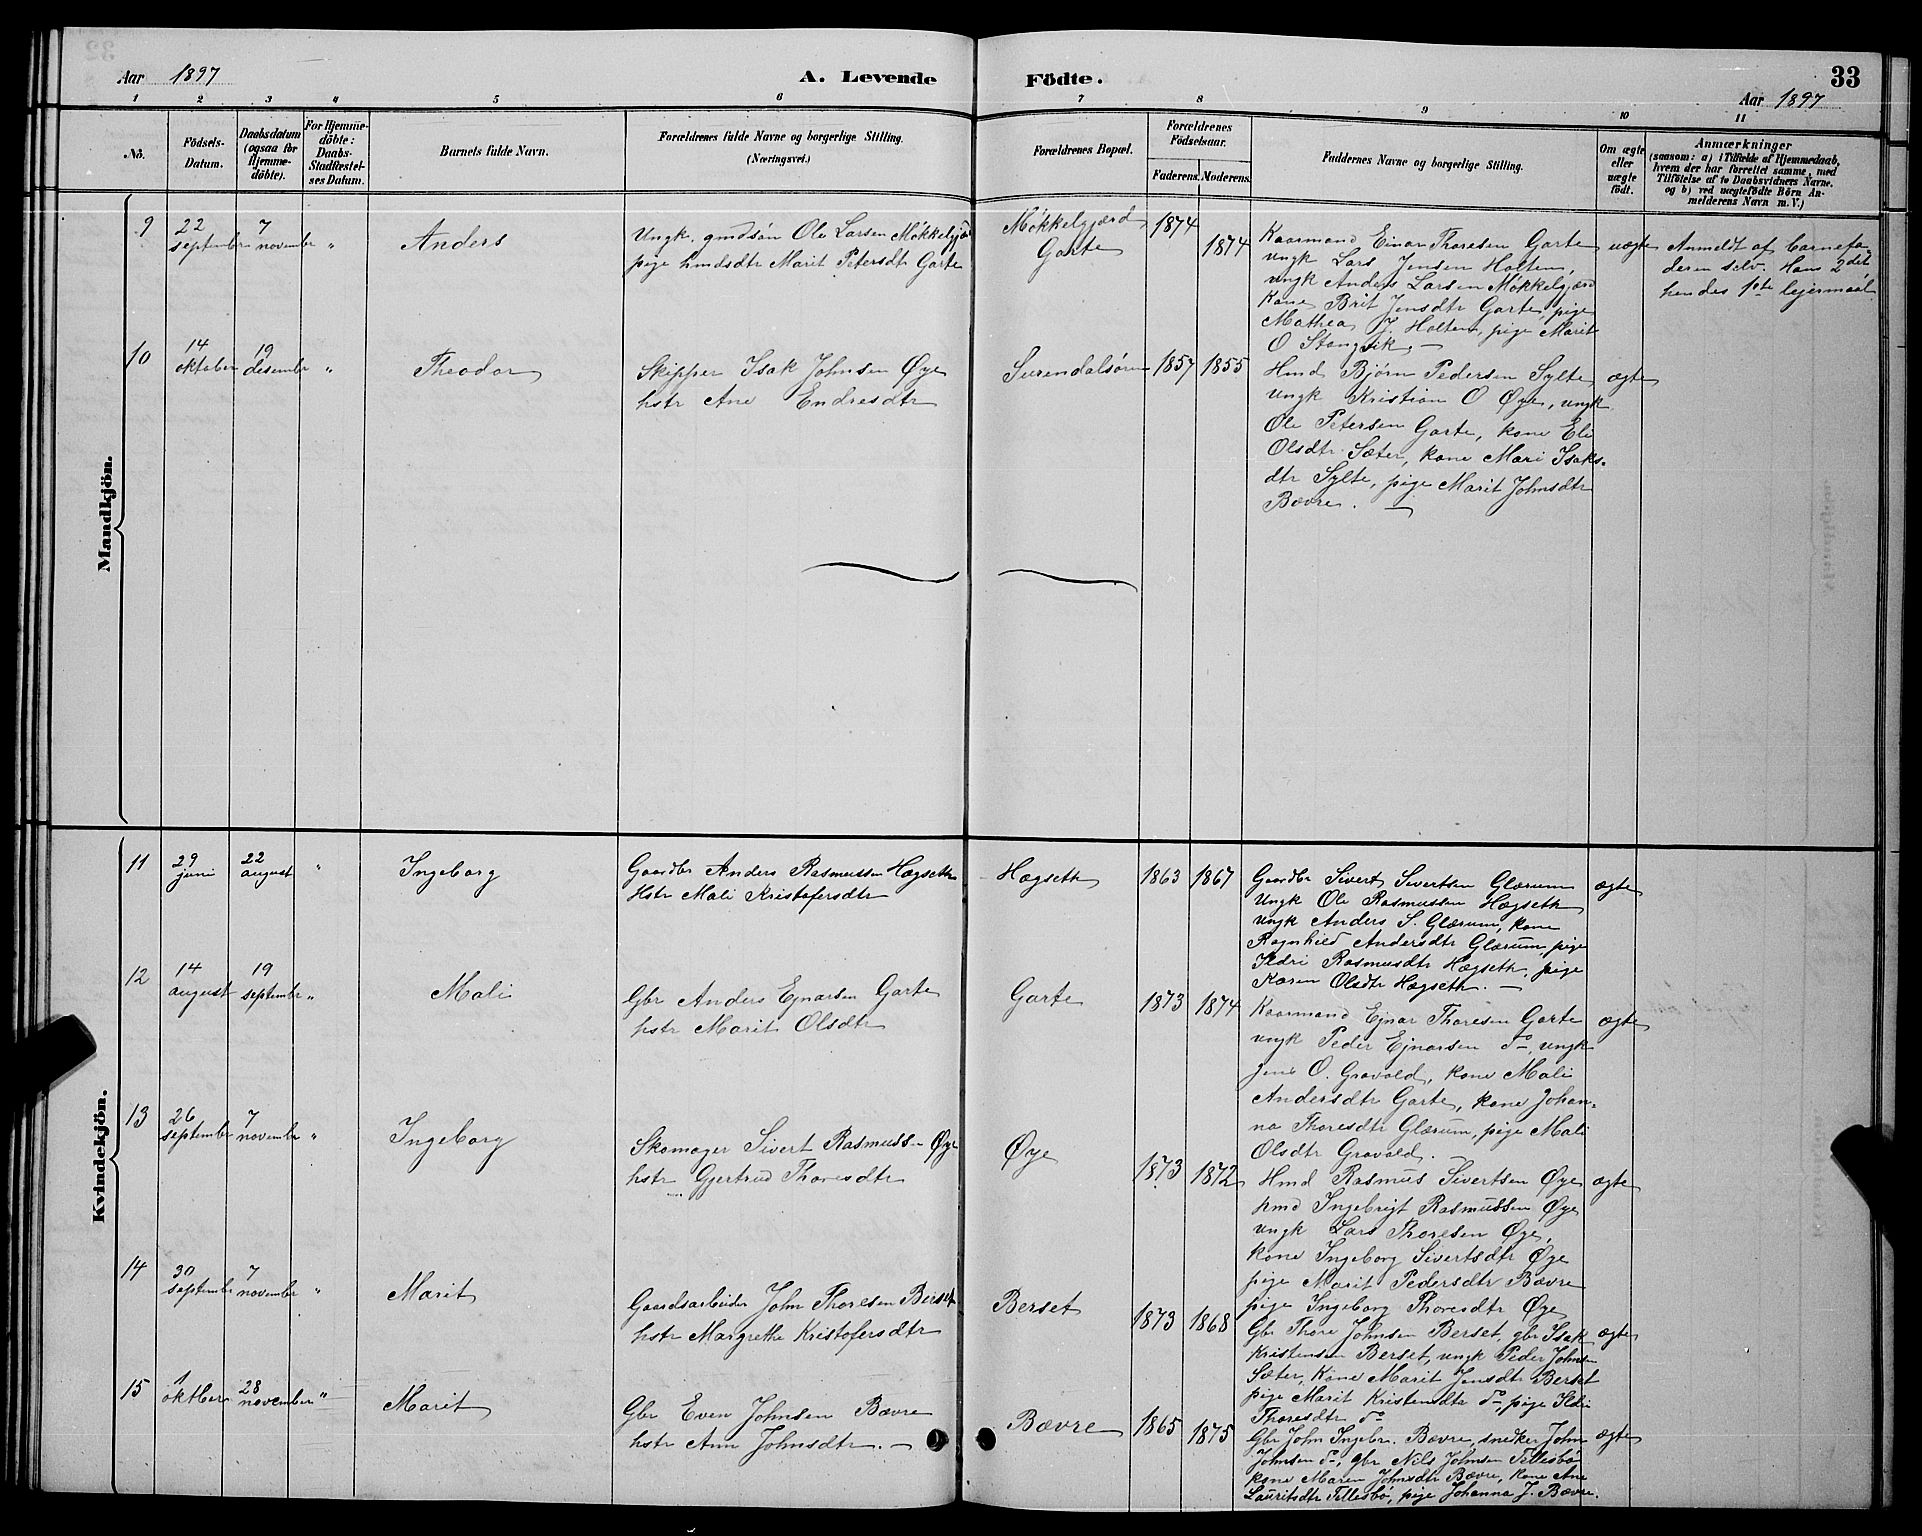 Aar 1897
A. Levende
Födte.
33
Aar 1897
1 2 3 4 5 6 7 8 9 10 11
Nô.
Födsels-
Datum.
Daabsdatum
(ogsaa for
Hjemme-
döbte).
For Hjemme-
döbte:
Daabs-
Stadfæstel-
ses Datum.
Barnets fulde Navn.
Forældrenes fulde Navne og borgerlige Stilling.
(Næringsvei.)
Forældrenes Bopæl.
Forældrenes
Födselsaar.
Faderens. Moderens.
Faddernes Navne og borgerlige Stilling.
Om ægte
eller
uægte
födt.
Anmærkninger
(saasom: a) i Tilfælde af Hjemmedaab,
hvem der har forrettet samme, med
Tilföielse af to Daabsvidners Navne,
og b) ved uægtefödte Börn An-
melderens Navn m. V.)
Mandkjön.
9
22
septembr
7
novembr
"
Anders
Ungk. gmdsön Ole Larsen Møkkelgjærd
pige hmdsdtr Marit Petersdtr Garte
Møkkelgjærd
Garte
1874
1874
Kaarmand Einar Thoresen Garte
ungk Lars Jensen Holten,
ungk Anders Larsen Møkkelgjærd
Kone Brit Jensdtr Garte, pige
Mathea J. Holten, pige Marit
O Stangvik. —
uægte
Anmeldt af barnefa-
deren selv. Hans 2det
hendes 1ste lejermaal
10
14
oktober
19
desembr
"
Theodor
Skipper Isak Johnsen Øye
hstr Ane Endresdtr
Surendalsøren
1857
1855
Hmd Bjørn Pedersen Sylte
ungk Kristian O Øye, ungk
Ole Petersen Garte, kone Eli
Olsdtr Sæter, kone Mari Isaks-
dtr Sylte, pige Marit Johnsdtr
Bævre. —
ægte
Kvindekjön.
11
29
juni
22
august
"
Ingeborg
Gaardbr Anders Rasmussen Hægseth
Hstr Mali Kristofersdtr
Hægseth
1863
1867
Gaardbr Sivert Sivertsen Glærum
Ungk Ole Rasmussen Hægseth
ungk Anders S. Glærum, kone
Ragnhild Andersdtr Glærum, pige
Ildri Rasmusdtr Hægseth, pige
Karen Olsdtr Hægseth. —
ægte
12
14
august
19
septembr
"
Mali
Gbr Anders Ejnarsen Garte
hstr Marit Olsdtr
Garte
1873
1874
Kaarmand Ejnar Thoresen Garte
ungk Peder Ejnarsen do, ungk
Jens O. Gravold, kone Mali
Andersdtr Garte, kone Johan-
na Thoresdtr Glærum, pige Mali
Olsdtr Gravold. —
ægte
13
26
septembr
7
novembr
"
Ingeborg
Skomager Sivert Rasmussen Øye
hstr Gjertrud Thoresdtr
Øye
1873
1872
Hmd Rasmus Sivertsen Øye
hmd Ingebrigt Rasmussen Øye
ungk Lars Thoresen Øye,
kone Ingeborg Sivertsdtr Øye
pige Marit Pedersdtr Bævre
pige Ingeborg Thoresdtr Øye
ægte
14
30
septembr
7
november
"
Marit
Gaardsarbeider John Thoresen Berset
hstr Margrethe Kristofersdtr
Berset
1873
1868
Gbr Thore Johnsen Berset, gbr Isak
Kristensen Berset, ungk Peder Johnsen
Sæter, Kone Marit Jensdtr Berset
pige Marit Kristensdtr do, pige Ildri
Thoresdtr do
ægte
15
1
oktber
28
november
"
Marit
Gbr Even Johnsen Bævre
hstr Ann Johnsdtr. —
Bævre
1865
1875
Gbr John Ingebr. Bævre, snedker John
Johnsen do, gbr Nils Johnsen Tellesbø
kone Maren Johnsdtr Bævre, kone Ane
Lauritsdtr Tellesbø, pige Johanna J. Bævre.
ægte